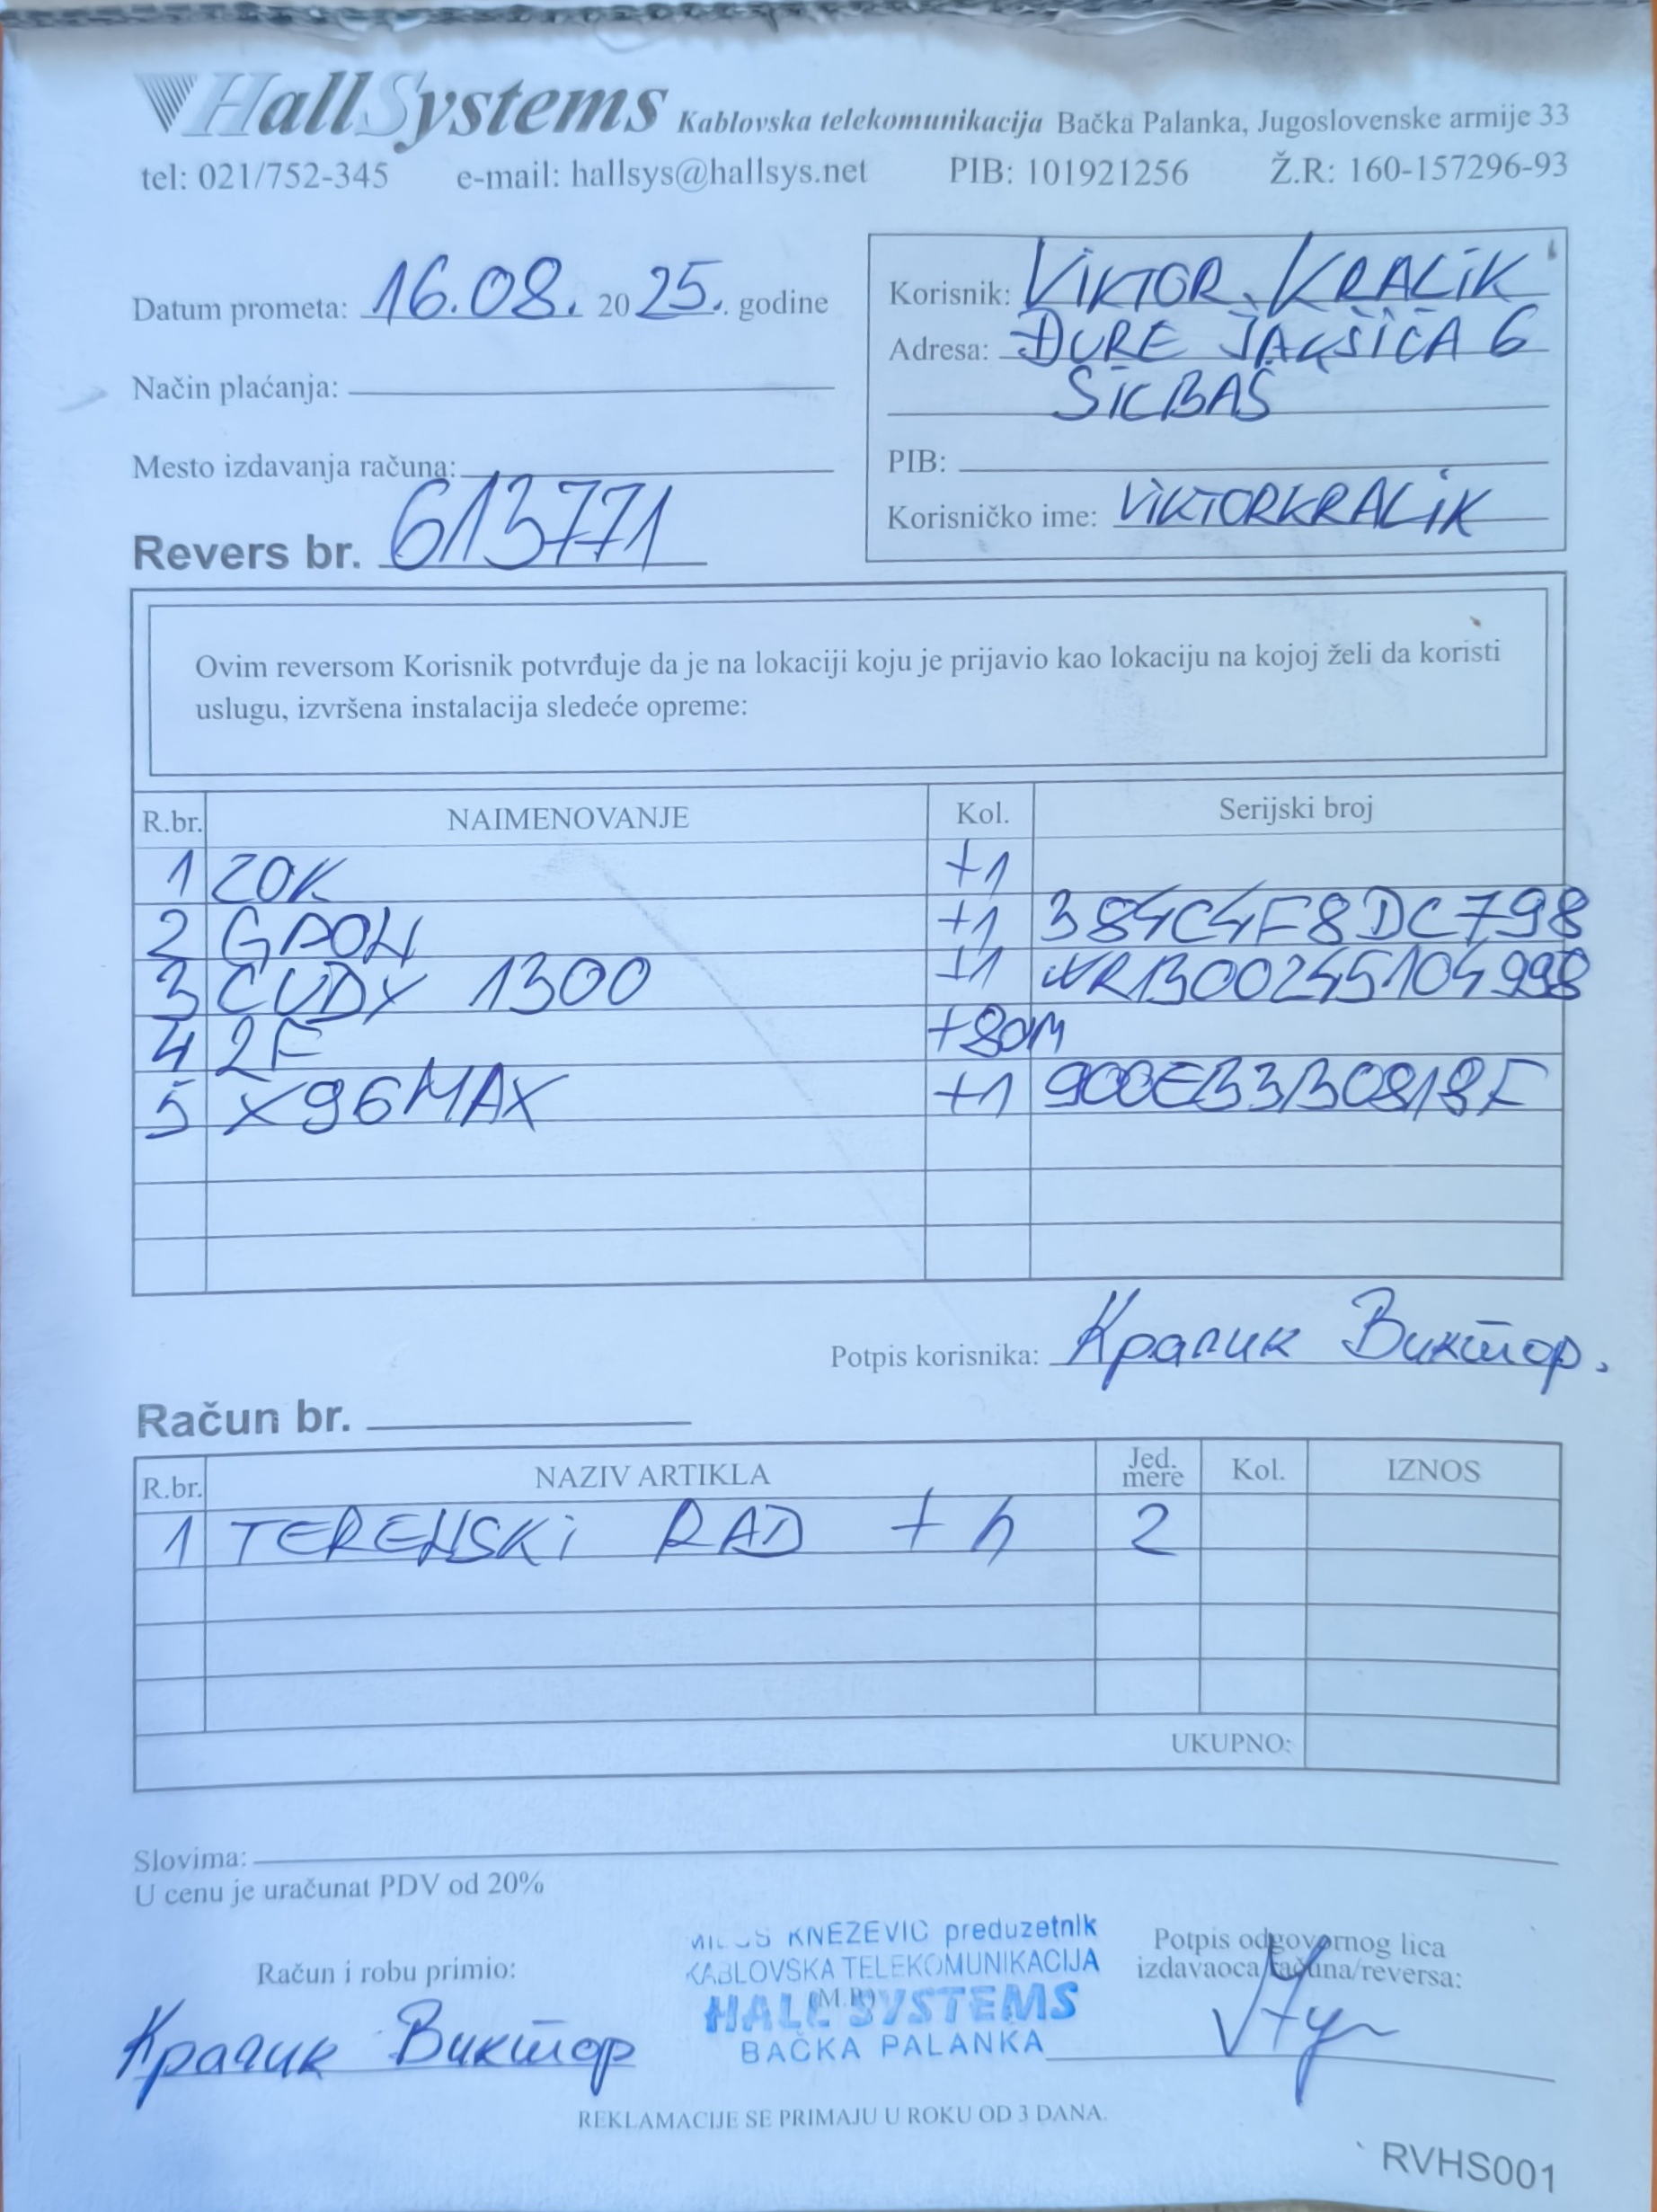 HallSystems Kablovska telekomunikacija Bačka Palanka, Jugoslovenske armije 33
tel: 021/752-345 e-mail: hallsys@hallsys.net PIB: 101921256 Ž.R: 160-157296-93
Datum prometa: 16.08. 2025. godine
Način plaćanja:
Mesto izdavanja računa:
Revers br. 613771
Korisnik: VIKTOR KRALIK
Adresa: ĐURE JAKŠIĆA 6
ŠICBAŠ
PIB:
Korisničko ime: VIKTORKRALIK
Ovim reversom Korisnik potvrđuje da je na lokaciji koju je prijavio kao lokaciju na kojoj želi da koristi
uslugu, izvršena instalacija sledeće opreme:
R.br. NAIMENOVANJE Kol. Serijski broj
1 ZOK +1
2 GPON +1 384C4F8DC798
3 CUDY 1300 +1 WR1300245104998
4 2F +80M
5 X96MAX +1 900EB3B0818F
Potpis korisnika: Кралик Виктор.
Račun br.
R.br. NAZIV ARTIKLA Jed. mere Kol. IZNOS
1 TERENSKI RAD + h 2
UKUPNO:
Slovima:
U cenu je uračunat PDV od 20%
Račun i robu primio:
Кралик Виктор
MILOŠ KNEZEVIC preduzetnik
KABLOVSKA TELEKOMUNIKACIJA
(M.P.)
HALL SYSTEMS
BAČKA PALANKA
Potpis odgovornog lica
izdavaoca računa/reversa:
REKLAMACIJE SE PRIMAJU U ROKU OD 3 DANA.
RVHS001